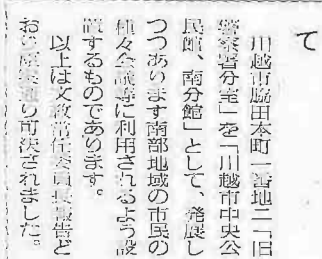 て
川越市脇田本町一番地ニ「旧
警察署分室」を「川越市中央公
民館、南分館」として、発展し
つつあります南部地域の市民の
種々会議等に利用されるよう設
置するものであります。
以上は文教常任委員長報告ど
おり原案通り可決されました。